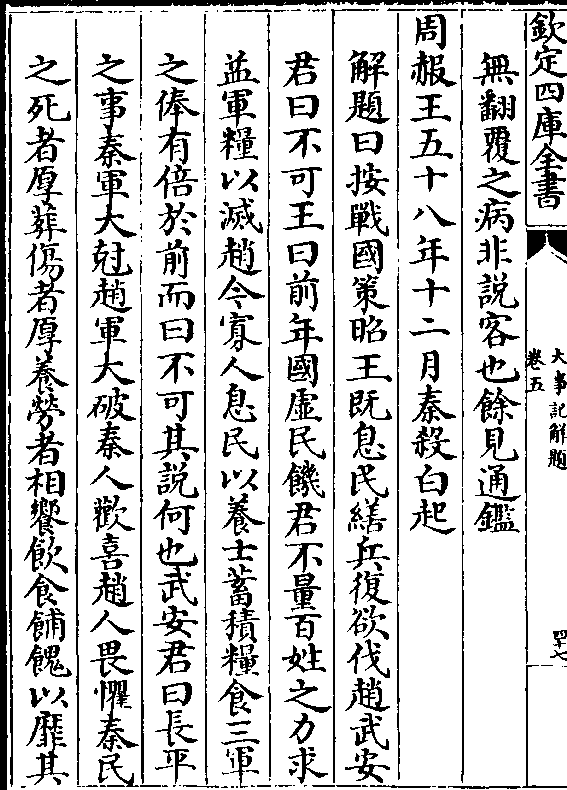 欽定四庫全書
大事記解題
卷五
四十七
無翻覆之病非説客也餘見通鑑
周赧王五十八年十二月秦殺白起
解題曰按戰國策昭王既息民繕兵復欲伐趙武安
君曰不可王曰前年國虚民饑君不量百姓之力求
益軍糧以滅趙今寡人息民以養士蓄積糧食三軍
之俸有倍於前而曰不可其説何也武安君曰長平
之事秦軍大尅趙軍大破秦人歡喜趙人畏懼秦民
之死者厚葬傷者厚養勞者相饗飲食餔餽以靡其